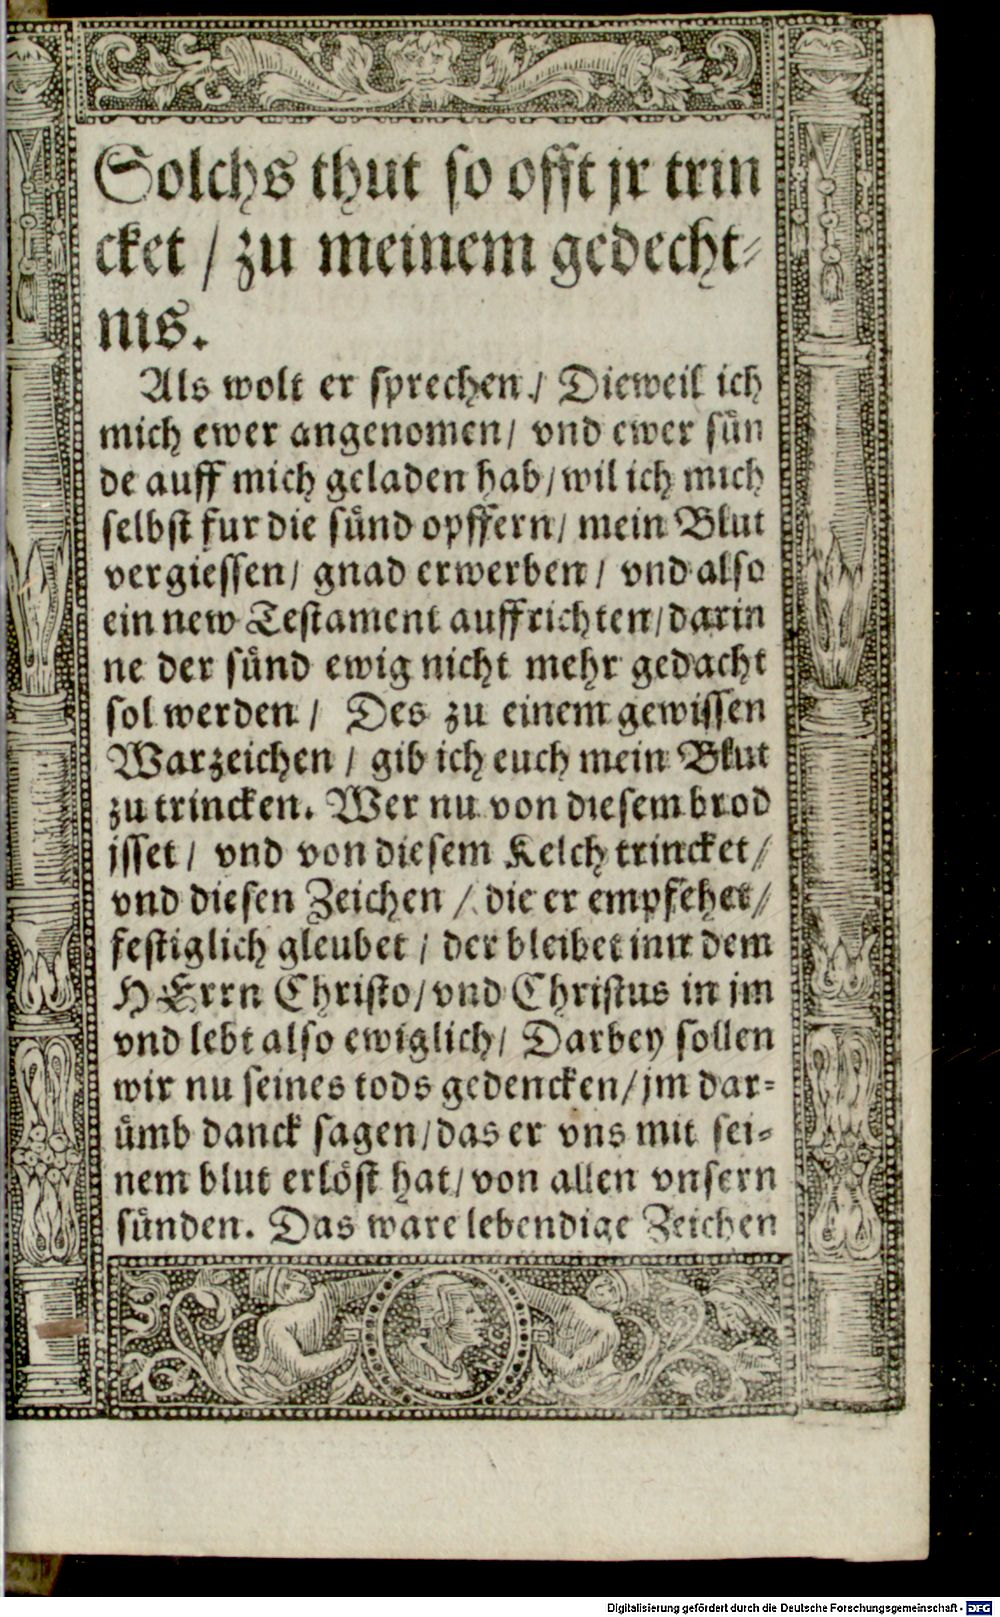 Solchs thut so offt jr trin
cket / zu meinem gedecht-
nis.
Als wolt er sprechen / Dieweil ich
mich ewer angenomen / vnd ewer sün
de auff mich geladen hab / wil ich mich
selbst fur die sünd opffern / mein Blut
vergiessen / gnad erwerben / vnd also
ein new Testament auffrichten / darin
ne der sünd ewig nicht mehr gedacht
sol werden / Des zu einem gewissen
Warzeichen / gib ich euch mein Blut
zu trincken. Wer nu von diesem brod
jsset / vnd von diesem Kelch trincket /
vnd diesen Zeichen / die er empfehet /
festiglich gleubet / der bleibet inn dem
HErrn Christo / vnd Christus in jm
vnd lebt also ewiglich / Darbey sollen
wir nu seines tods gedencken / jm dar-
ümb danck sagen / das er vns mit sei-
nem blut erlöst hat / von allen vnsern
sünden. Das ware lebendige Zeichen
Digitalisierung gefördert durch die Deutsche Forschungsgemeinschaft - DFG